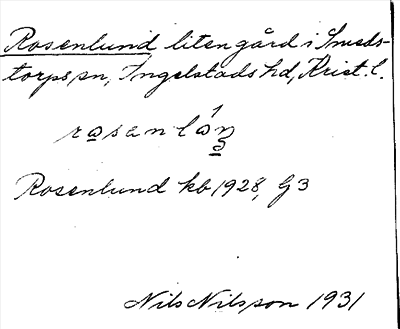 Rosenlund liten gård i Smeds-
torps sn, Ingelstads hd, Krist. l.
rosenlón
Rosenlund kb 1928, G3
Nils Nilsson 1931